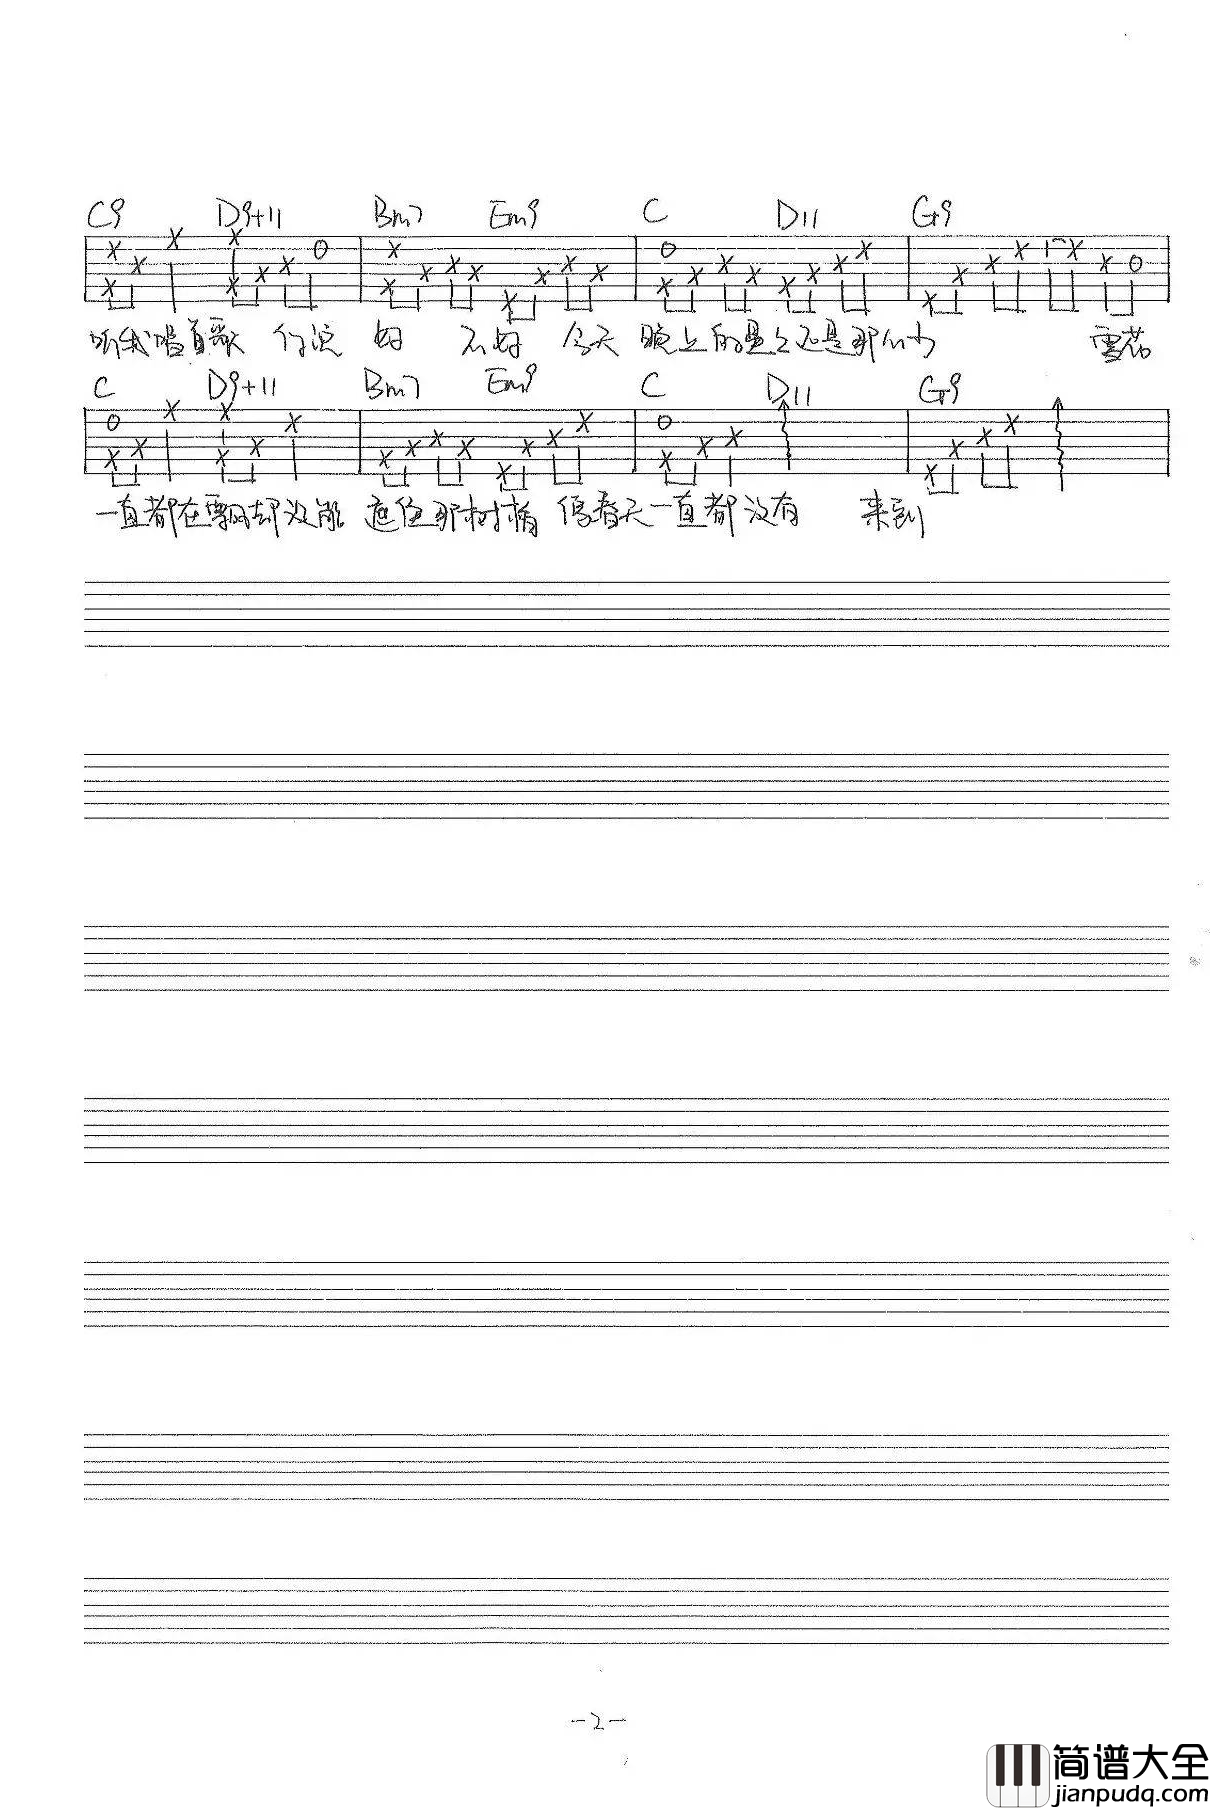 C9 D9+11 Bm7 Em9 C D11 G9
听我唱首歌 你说 好 不好 今天 晚上的星星还是那么少 雪花
C D9+11 Bm7 Em9 C D11 G9
一直都在飘却没能 遮住那树梢 像春天一直都没有 来到
-2-
简谱大全
jianpudq.com